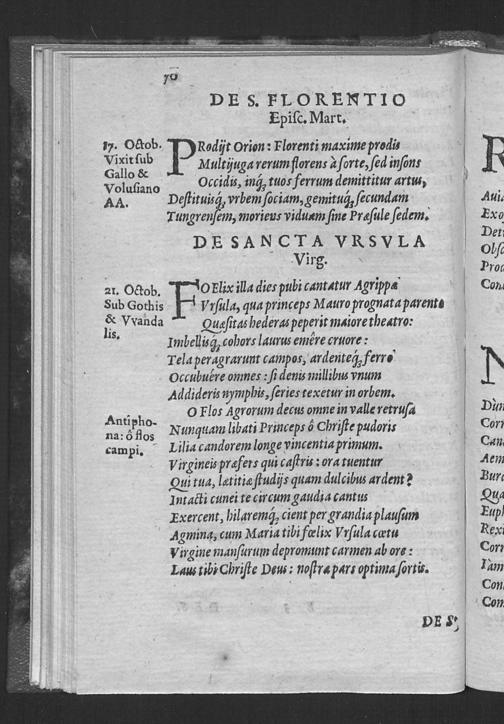 70
DE S. FLORENTIO
Epiſc. Mart.
17. Octob.
Vixit ſub
Gallo &
Voluſiano
AA.
PRodijt Orion: Florenti maxime prodis
Multijuga rerum florens à ſorte, ſed inſons
Occidis, inq́ꝫ tuos ferrum demittitur artus,
Deſtituisq́ꝫ vrbem ſociam, gemituq́ꝫ ſecundam
Tungrenſem, moriens viduam ſine Præſule ſedem.
DE SANCTA VRSVLA
Virg.
21. Octob.
Sub Gothis
& Vvanda
lis.
FOElix illa dies pubi cantatur Agrippæ
Vrſula, qua princeps Mauro prognata parente
Quæſitas hederas peperit maiore theatro:
Imbellisq́ꝫ cohors laurus emêre cruore:
Tela peragrarunt campos, ardenteq́ꝫ ferro
Occubuêre omnes: ſi denis millibus vnum
Addideris nymphis, ſeries texetur in orbem.
Antipho-
na: ô flos
campi.
O Flos Agrorum decus omne in valle retruſa
Nunquam libati Princeps ô Chriſte pudoris
Lilia candorem longe vincentia primum.
Virgineis præfers qui caſtris: ora tuentur
Qui tua, lætitiæ ſtudijs quam dulcibus ardent?
Intacti cunei te circum gaudia cantus
Exercent, hilaremq́ꝫ cient per grandia plauſum
Agmina, cum Maria tibi fœlix Vrſula cœtu
Virgine manſurum depromunt carmen ab ore:
Laus tibi Chriſte Deus: noſtra pars optima ſortis.
DE S.
R
Auia
Exo
Det
Obſc
Proc
Cond
N
Dùm
Corr
Cand
Aem
Burc
Quæ
Euph
Rexi
Corr
Iam
Con
Com